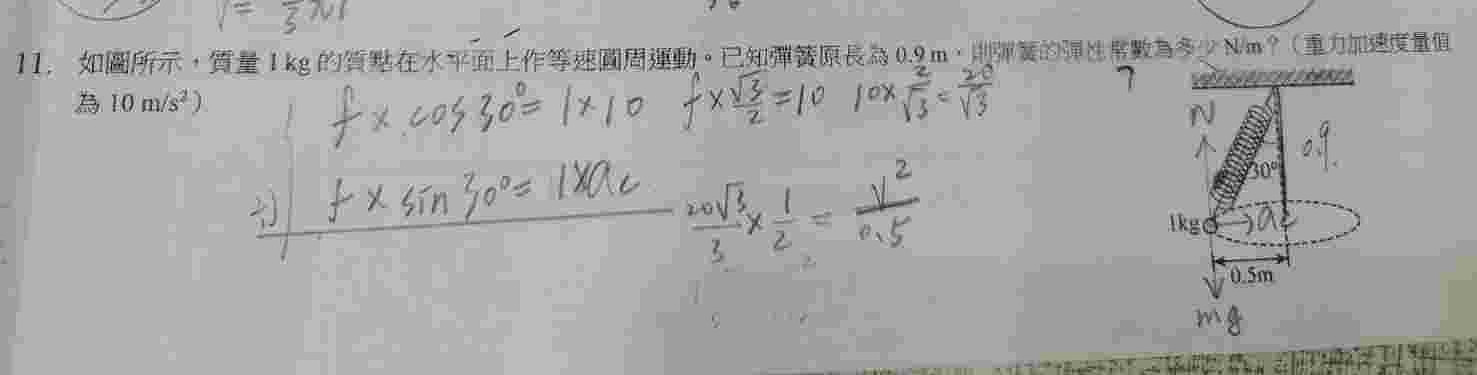 11. 如圖所示，質量 1 kg 的質點在水平面上作等速圓周運動。已知彈簧原長為 0.9 m，則彈簧的彈性常數為多少 N/m？（重力加速度量值
為 10 m/s²）
f × cos 30° = 1 × 10   f × √3/2 = 10   10 × 2/√3 = 20/√3
÷) f × sin 30° = 1 × ac
20√3/3 × 1/2 = v²/0.5
N
0.9
30°
1kg
ac
0.5m
mg